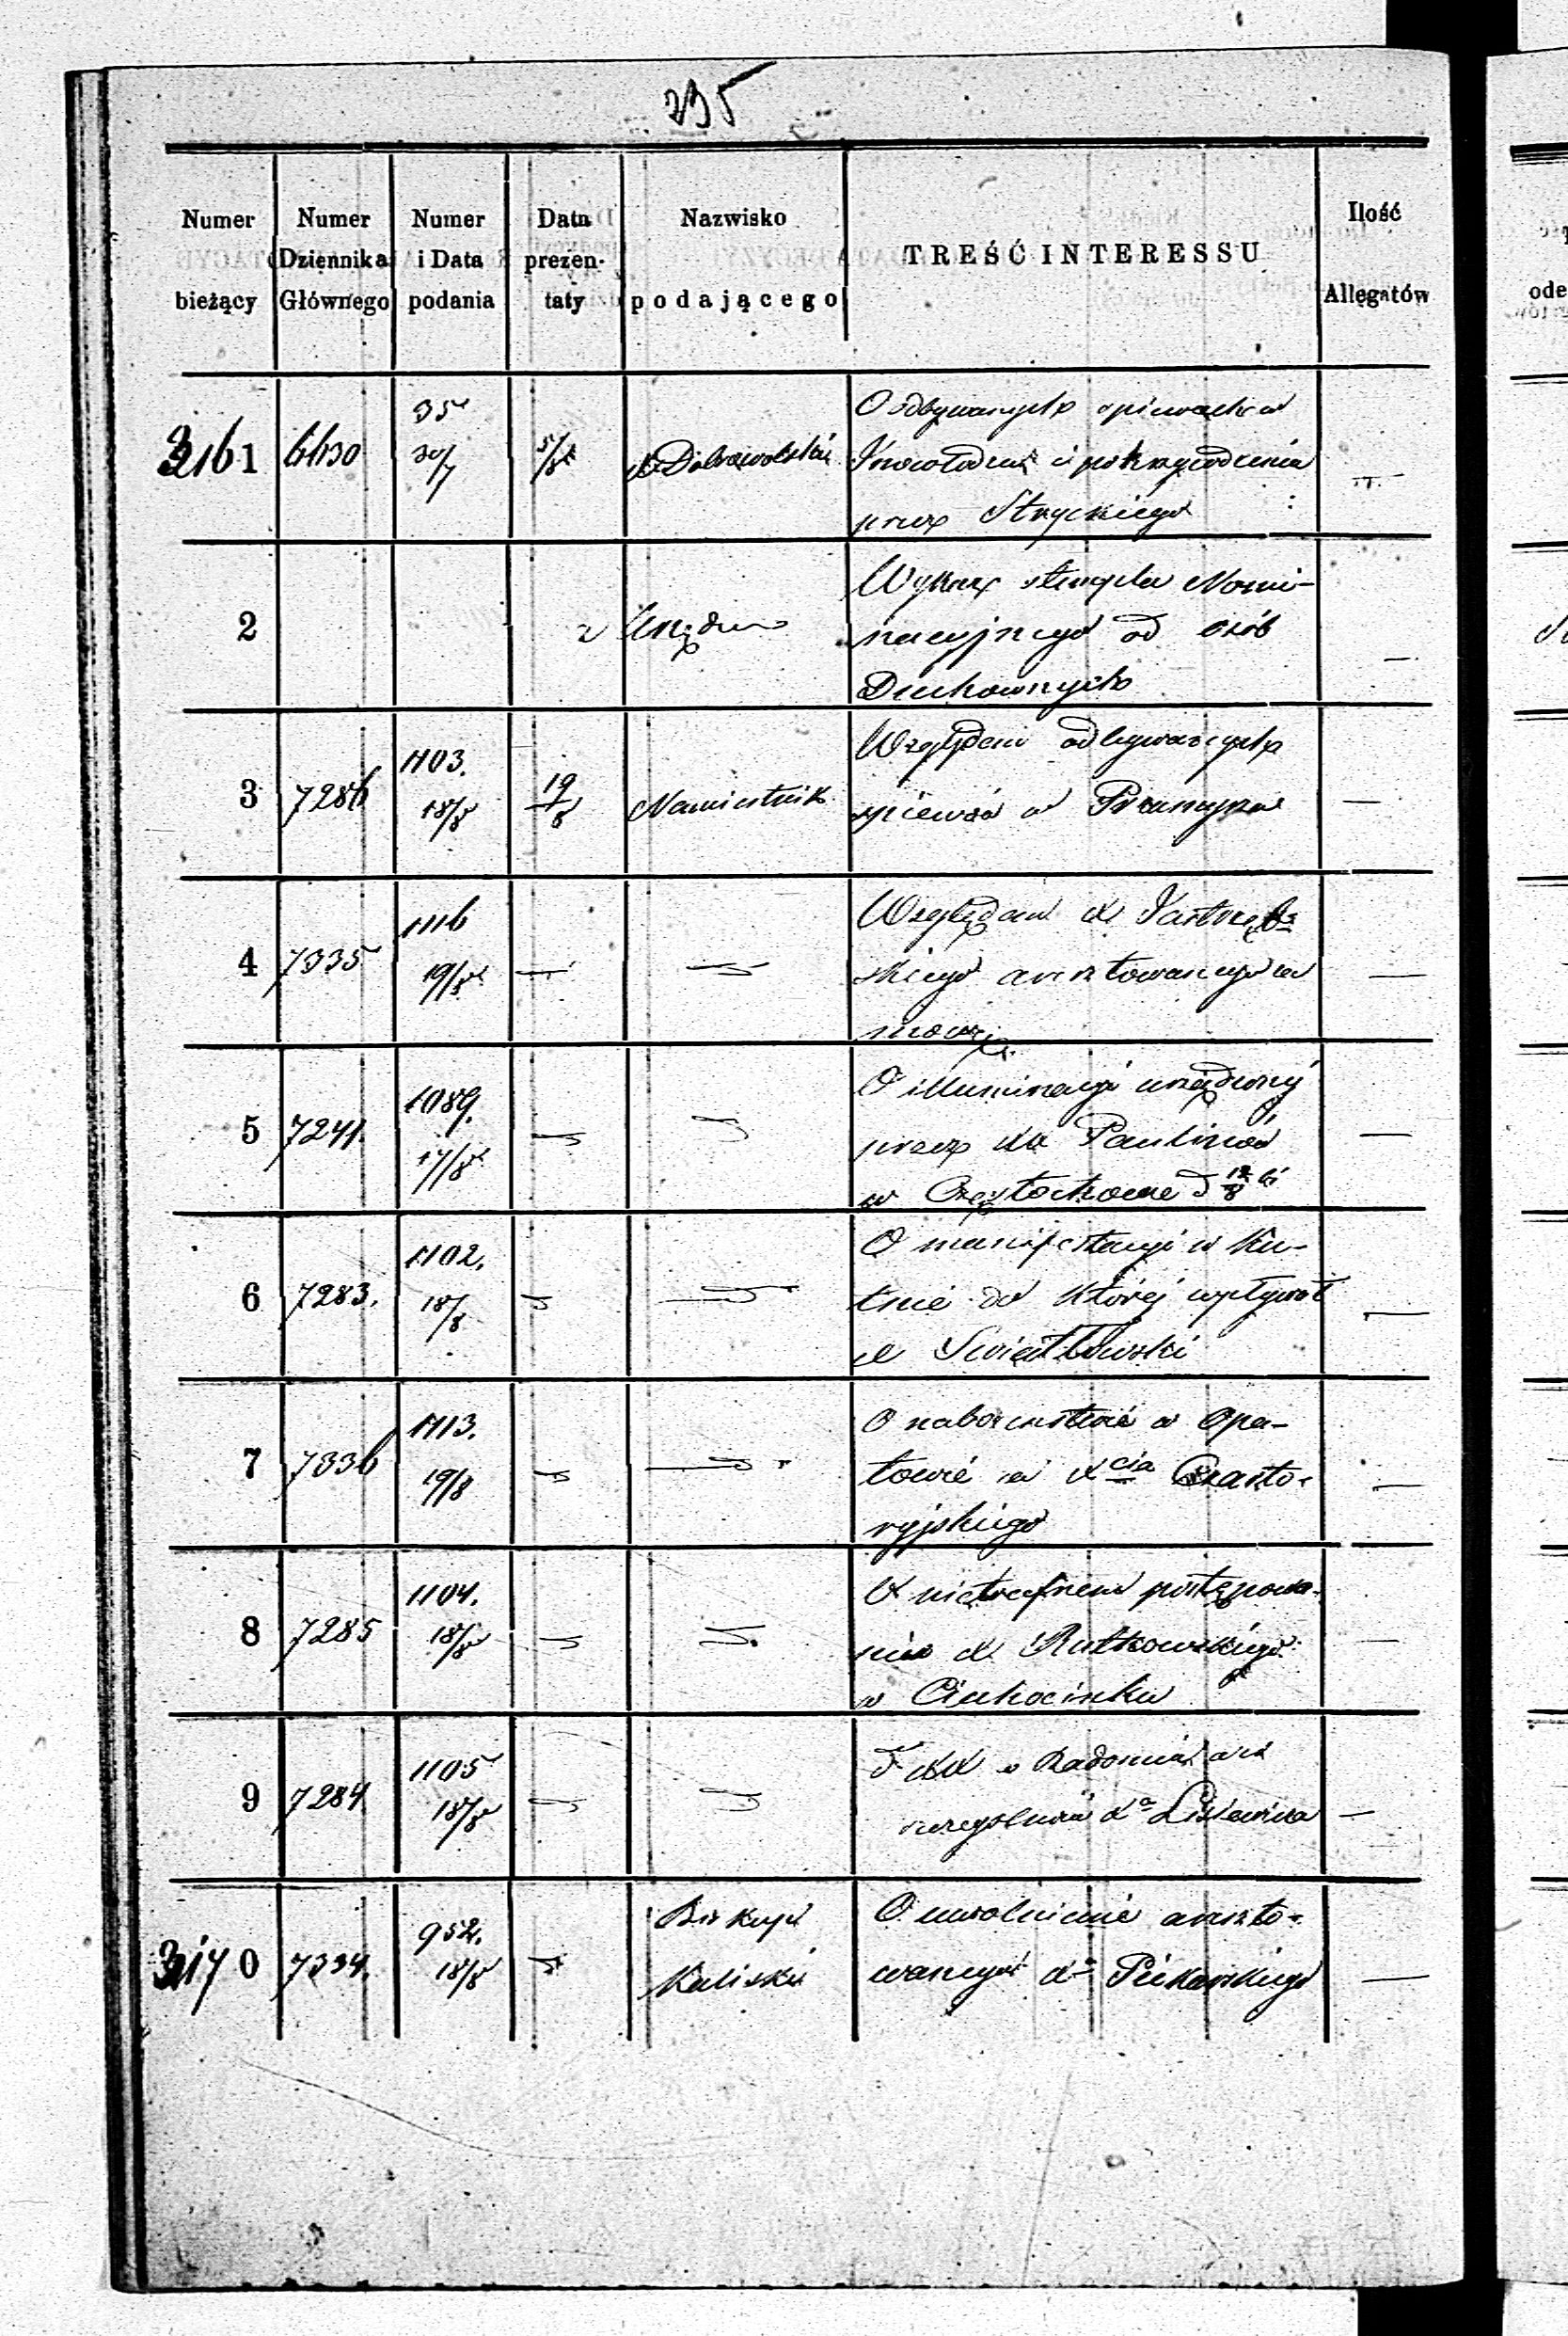 295
Numer bieżący | Numer Dziennika Głównego | Numer i Data podania | Data prezentaty | Nazwisko podającego | TREŚĆ INTERESSU | Ilość Allegatów
3161 | 6630 | 35 30/7 | 5/8 | X Dobrowolski | O odbywanych śpiewach w
Inowłodzu i pokrzywdzenia
przez Stryckiego
2 | z Urzędu | Wykaz stempla Nomi-
nacyjnego od osób
Duchownych
3 | 7286 | 1103. 18/8 | 19/8 | Namiestnik | Względem odbywanych
śpiewów w | —
4 | 7335 | 1116 19/8 | — | Względem X Jastrzęb-
skiego aresztowanego za
mowę
5 | 7241 | 1089. 17/8 | O illuminacyi urządzonej
przez XX Paulinów
w Częstochowie d 12/8
6 | 7283. | 1102. 18/8 | O manifestacyi w Ku-
tnie do której wpływał
X Swiątkowski
7 | 7336 | 1113. 19/8 | O nabożeństwie w Opa-
towie za Xcia Czarto-
ryjskiego
8 | 7285 | 1104. 18/8 | O nietrafnem postępowa-
niu X Rutkowskiego
w Ciechocinku
9 | 7284 | 1105 18/8 | XX w Radomiu
3170 | 7334. | 952. 18/8 | Biskup Kaliski | O uwolnienie areszto-
wanego Xa Piekarskiego | —